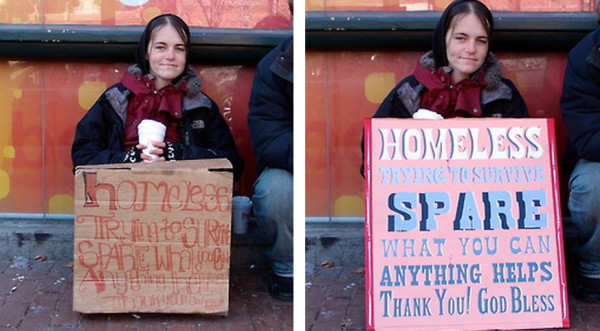 homeless
Trying to
SPARE What you Can
Anything Helps
HOMELESS
TRYING TO SURVIVE
SPARE
WHAT YOU CAN
ANYTHING HELPS
THANK YOU! GOD BLESS